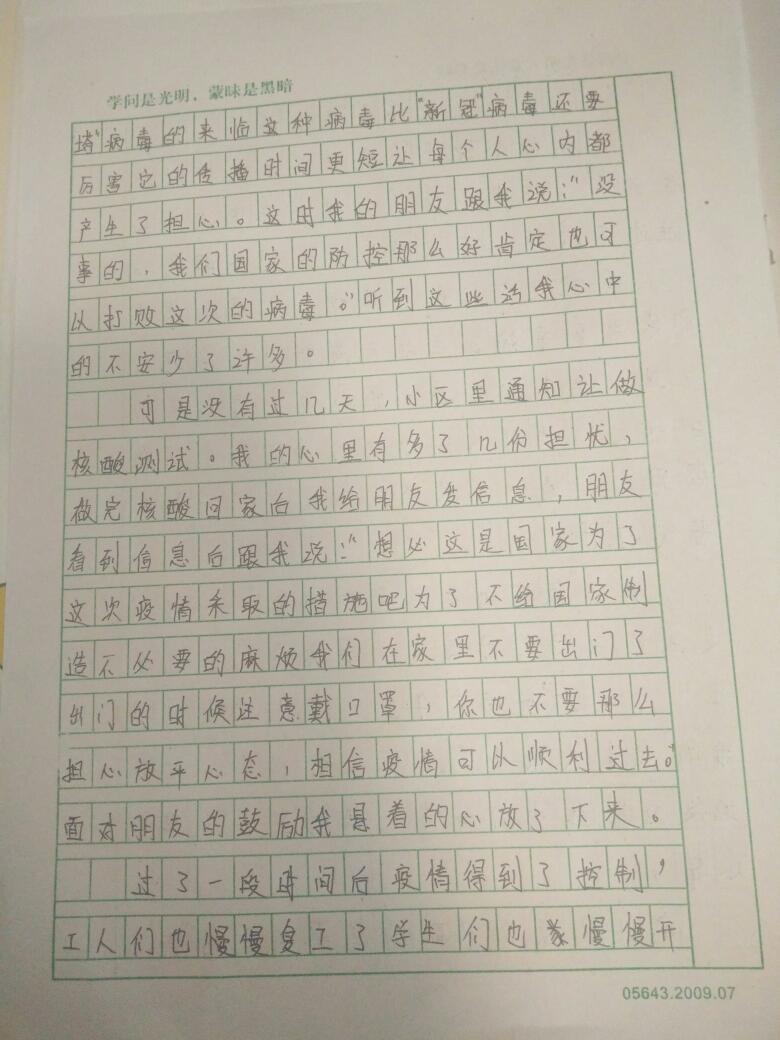 学问是光明，蒙昧是黑暗
塔"病毒的来临这种病毒比"新冠"病毒还要
厉害它的传播时间更短让每个人心内都
产生了担心。这时我的朋友跟我说："没
事的，我们国家的防控那么好肯定也可
以打败这次的病毒。"听到这些话我心中
的不安少了许多。
可是没有过几天，小区里通知让做
核酸测试。我的心里有多了几份担忧，
做完核酸回家后我给朋友发信息，朋友
看到信息后跟我说："想必这是国家为了
这次疫情采取的措施吧为了不给国家制
造不必要的麻烦我们在家里不要出门了
出门的时候注意戴口罩，你也不要那么
担心放平心态，相信疫情可以顺利过去。"
面对朋友的鼓励我悬着的心放了下来。
过了一段时间后疫情得到了控制，
工人们也慢慢复工了学生们也慢慢开
05643.2009.07